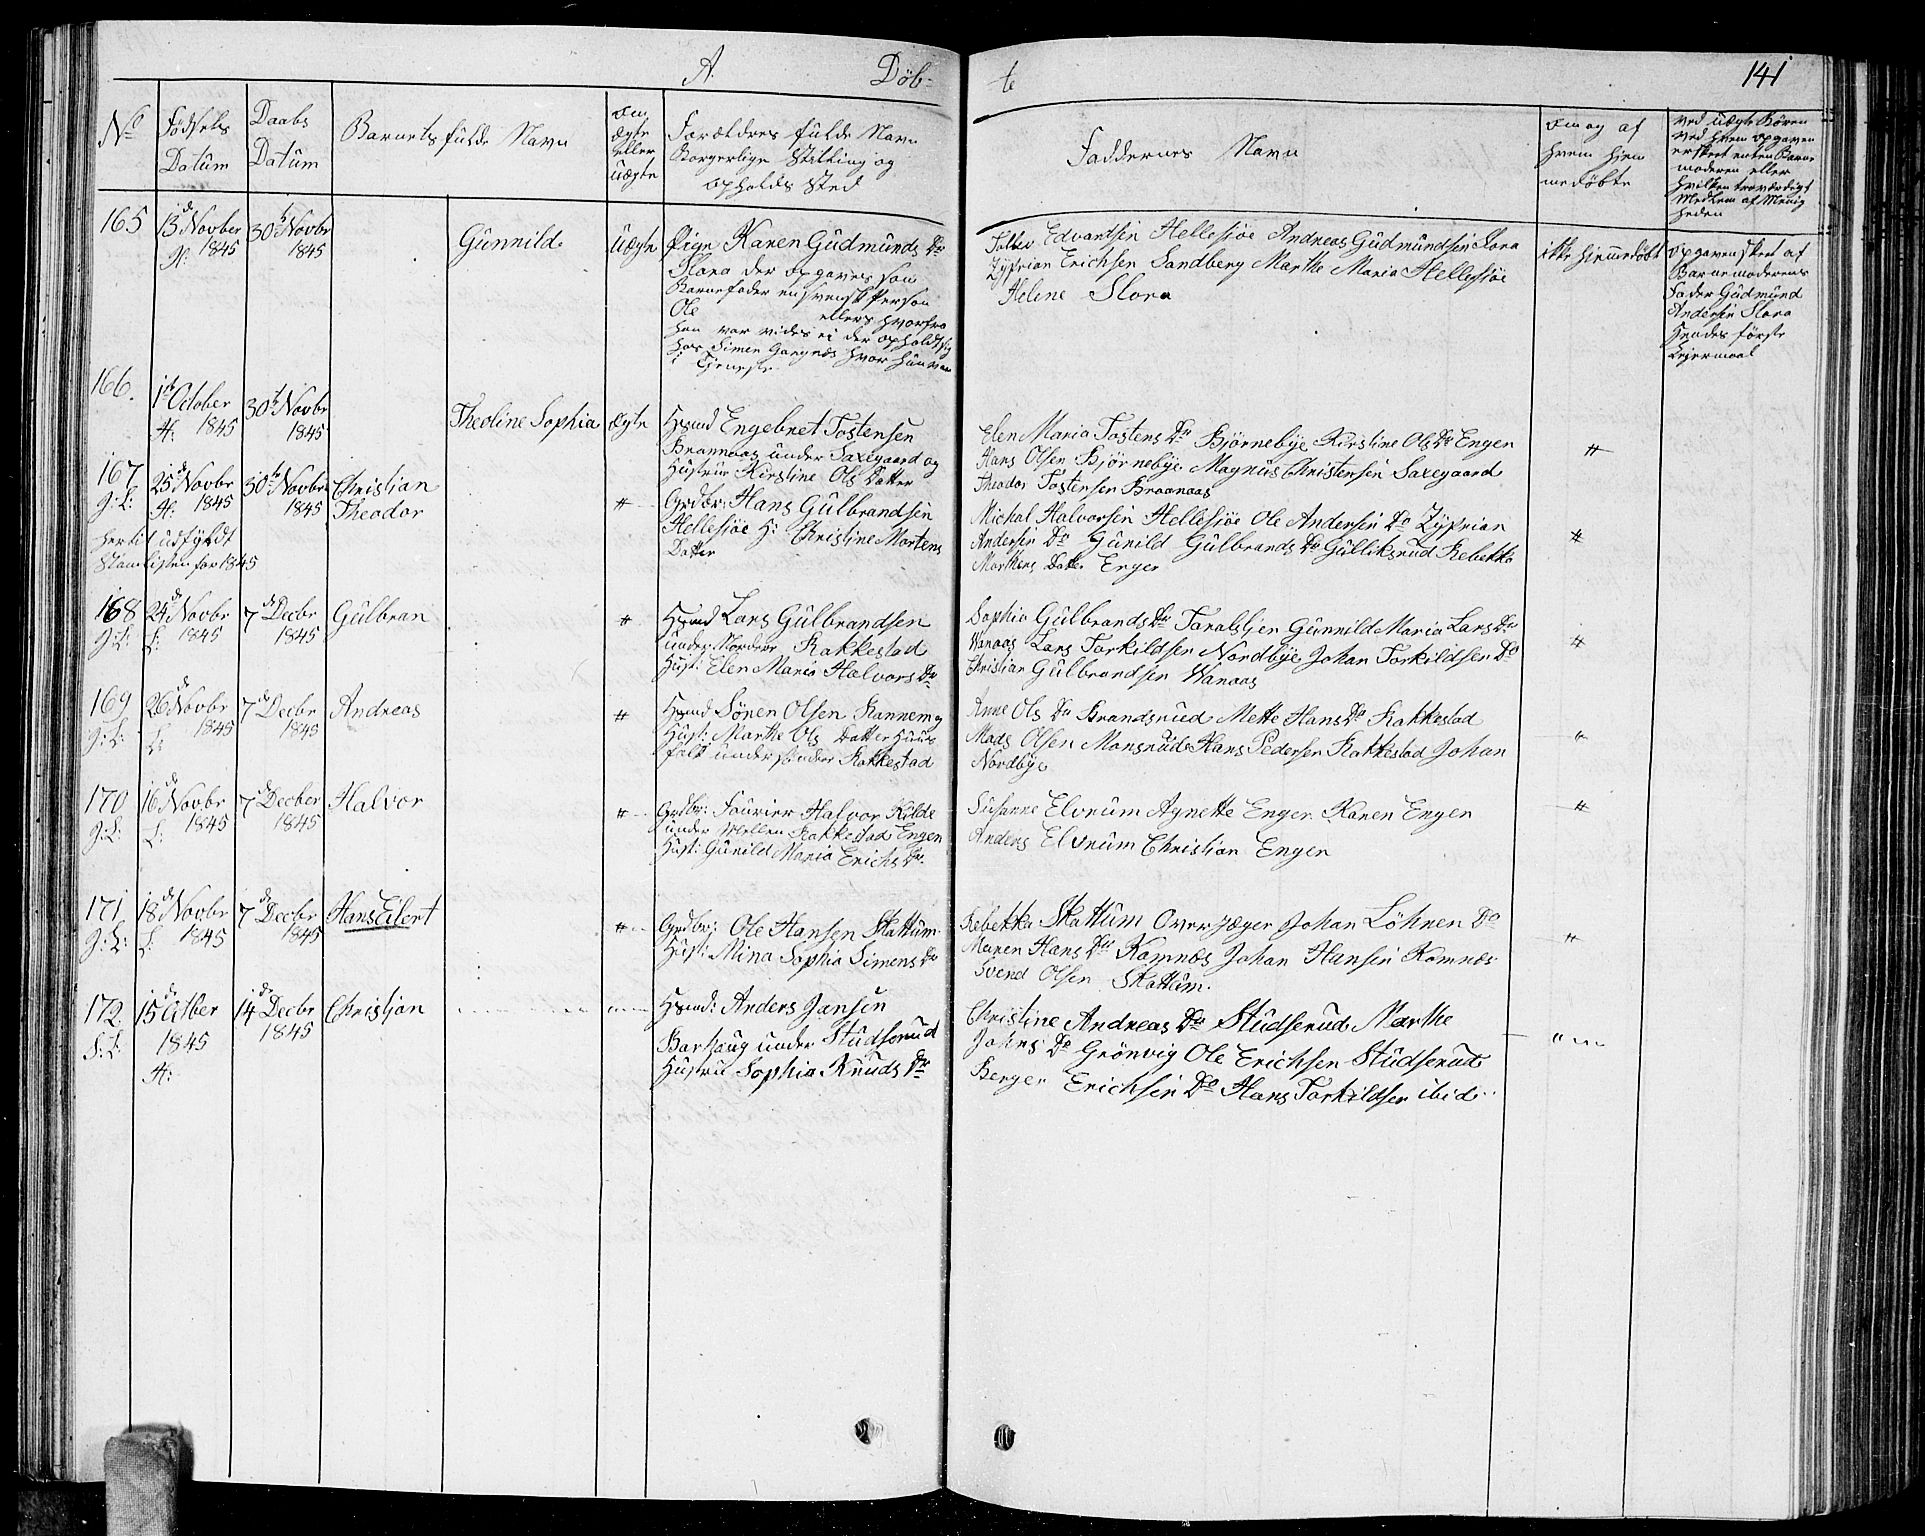 A. Døb-
te 141
No
Fødsels Datum
Daabs Datum
Barnets fulde Navn
om ægte eller uægte
Forældres fulde Navn
Borgerlige Stilling og
opholds Sted
Faddernes Navn
om og af
hvem hjem
medøbte
ved uægte Børn
ved hvem opgaven
er skeet enten Barne
moderen eller
hvilken troværdigt
Medlem af Menig
heden
165
13de Novber 1845
H:
30te Novbr 1845
Gunnild
Uægte
Pige Karen Gudmunds Dr
Slora der opgaves som
Barnefader en svensk Person
Ole ellers hvorfra
han var vides ei der opholdt sig
hos Simen Gangnæs hvor hun var
i Tjeneste
Edvardsen Hellesiøe Andreas Gudmundsen Slora
Zyprian Erichsen Sandberg Marthe Maria Hellesiøe
Helene Slora
ikke hjemmedøbt
opgaven skeet af
Barnemoderens
Fader Gudmund
Andersen Slora
Hendes første
Leiermaal
166.
1te October 1845
H:
30te Novbr 1845
Theoline Sophia
ægte
Hsmd Engebret Tostensen
Braanaas under Saxegaard og
Hustrue Kirstine Ols Datter
Elen Maria Tostens Dr Bjørnebye Kirstine Ols Dr Engen
Hans Olsen Bjørnebye Magnus Christensen Saxegaard
Theodor Tostensen Braanaas
〃
167
J: L:
25de Novbr 1845
H:
30te Novbr 1845
Christian
Theodor
〃
Grdbr: Hans Gulbrandsen
Hellesiøe H: Christine Mortens
Datter
Michal Halvorsen Hellesiøe Ole Andersen Do Zyprian
Andersen Do Gunild Gulbrands Dr Gulliksrud Rebekka
Morthens Datter Enger
〃
hertil udfyldt
Stamlisten for 1845
168
J: L:
24de Novbr 1845
L:
7de Decbr 1845
Gulbran
〃
Hsmd Lars Gulbrandsen
under Nordre Rakkestad
Hust: Elen Maria Halvors Dr
Sophia Gulbrands Dr Taraldsjer Gunnild Maria Lars Dr
Wanaas Lars Torkildsen Nordbye Johan Torkildsen Do
Christian Gulbrandsen Wanaas
〃
169
J: L:
26de Novbr 1845
L:
7de Decbr 1845
Andreas
〃
Hsmd Søren Olsen
Hust: Marthe Ols Datter Huus
folk under søndere Rakkestad
Anne Ols Dr Brandsrud Mette Hans Dr Rakkestad
Mads Olsen Monsrud Hans Pedersen Rakkestad Johan
Nordbye
〃
170
J: L:
16de Novbr 1845
L:
7de Decber 1845
Halvor
〃
Grdbr: Fourier Halvor Kilde
under Mellem Rakkestad Engen
Hust: Gunild Maria Erichs Dr.
Susanne Elvrum Agnette Enger Karen Engen
Anders Elvrum Christian Engen
〃
171
J: L:
18de Novbr 1845
L:
7de Decbr 1845
Hans Eilert
〃
Grdbr: Ole Hansen Skattum
Hust: Mina Sophia Simens Dr
Rebekka Skattum Overjæger Johan Löhnen Do
Maren Hans Dr Komnæs Johan Hansen Komnæs
Svend Olsen Skattum.
〃
172
S: L:
15de Octber 1845
H:
14de Decbr 1845
Christian
〃
Hsmd: Anders Jansen
Barhaug under Studserud
Hustru Sophia Knuds Dr
Christine Andreas Dr Studserud Marthe
Johns Dr Grönvig Ole Erichsen Studserud
Berger Erichsen Do Hans Torkildsen ibid.
〃